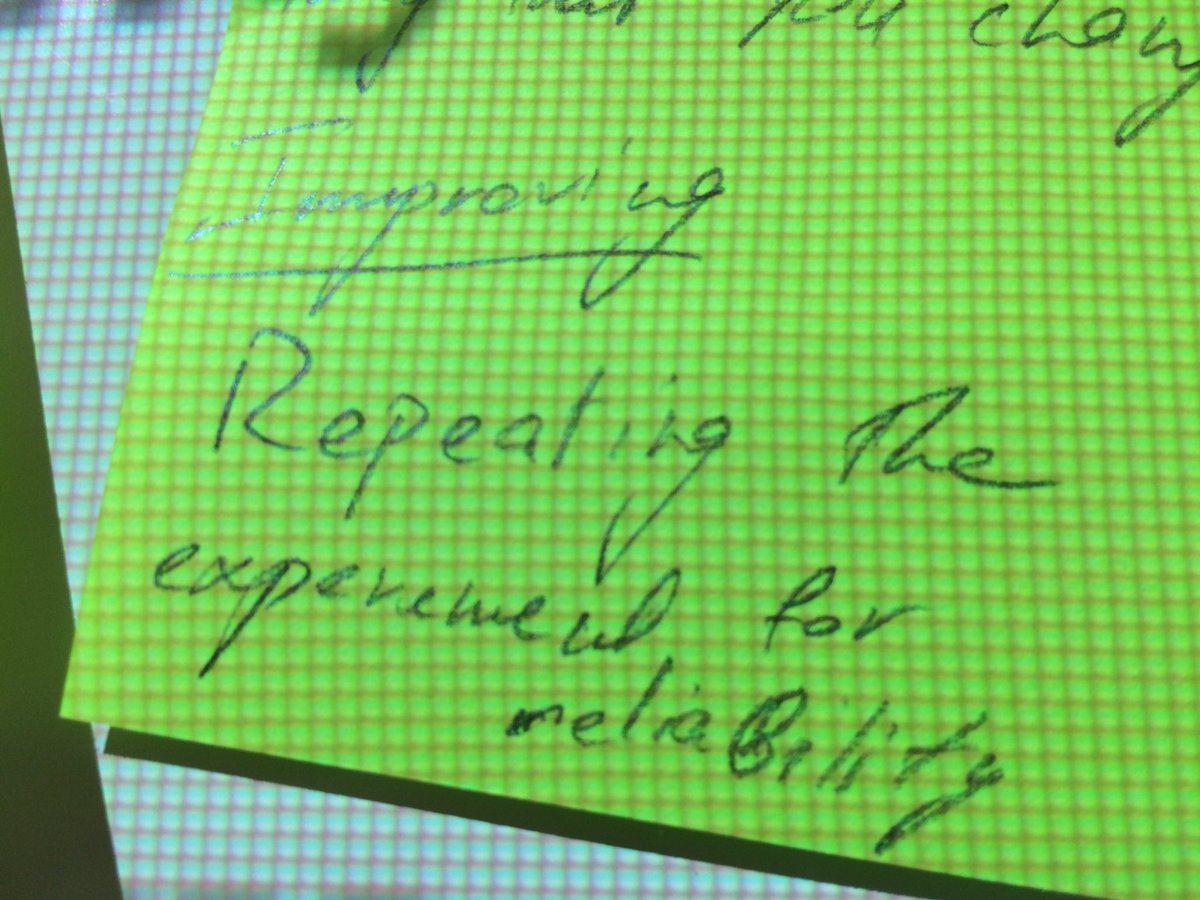 that you chang
Improving
Repeating The
experement for
reliaBility